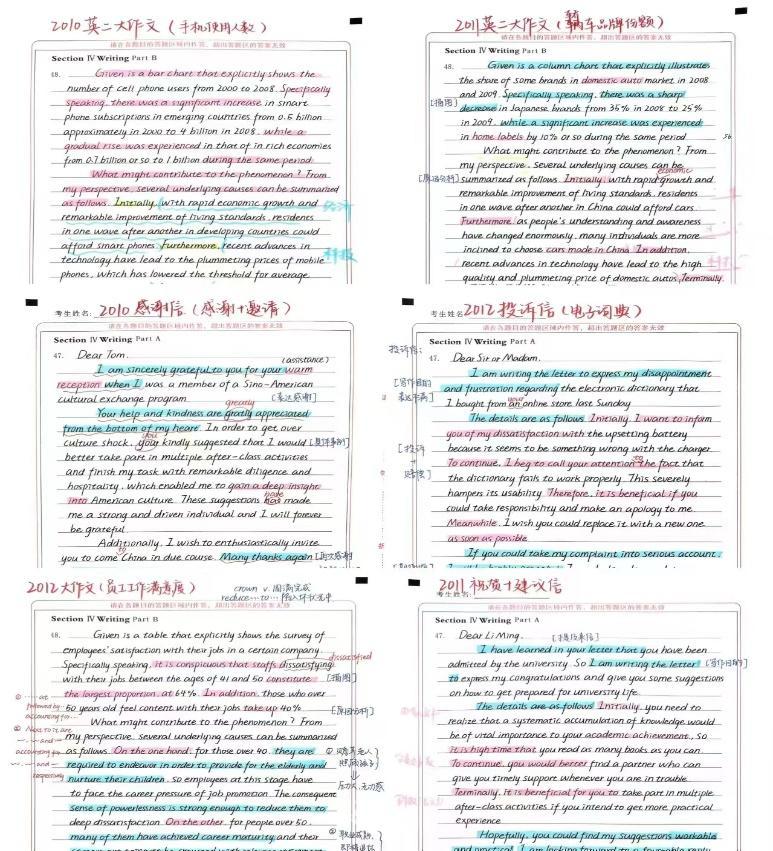 2010英二大作文(手机使用人数)
请在各题目的答题区域内作答,超出答题区的答案无效
Section Ⅳ Writing Part B
48. Given is a bar chart that explicitly shows the
number of cell phone users from 2000 to 2008. Specifically
speaking, there was a significant increase in smart
phone subscriptions in emerging countries from 0.5 billion
approximately in 2000 to 4 billion in 2008, while a
gradual rise was experienced in that of in rich economies
from 0.7 billion or so to 1 billion during the same period.
What might contribute to the phenomenon? From
my perspective, several underlying causes can be summarized
as follows. Initially, with rapid economic growth and
remarkable improvement of living standards, residents
in one wave after another in developing countries could
afford smart phones. Furthermore, recent advances in
technology have lead to the plummeting prices of mobile
phones, which has lowered the threshold for average
经济
科技
2011英二大作文(轿车品牌份额)
请在各题目的答题区域内作答,超出答题区的答案无效
Section Ⅳ Writing Part B
48. Given is a column chart that explicitly illustrates
the share of some brands in domestic auto market in 2008
and 2009. Specifically speaking, there was a sharp
[描图]
decrease in Japanese brands from 35% in 2008 to 25%
in 2009, while a significant increase was experienced
in home labels by 10% or so during the same period
56
What might contribute to the phenomenon? From
my perspective. Several underlying causes can be
economic
[原因分析]
summarized as follows. Initially, with rapid growth and
remarkable improvement of living standards, residents
in one wave after another in China could afford cars.
Furthermore, as people's understanding and awareness
have changed enormously, many individuals are more
inclined to choose cars made in China. In addition,
recent advances in technology have lead to the high
quality and plummeting price of domestic autos. Terminally,
考生姓名:
2010感谢信(感谢+邀请)
请在各题目的答题区域内作答,超出答题区的答案无效
Section Ⅳ Writing Part A
47. Dear Tom,
(assistance)
I am sincerely grateful to you for your warm
reception when I was a member of a Sino-American
cultural exchange program
[表达感谢]
greatly
Your help and kindness are greatly appreciated
from the bottom of my heare. In order to get over
you
culture shock, you kindly suggested that I would
better take part in multiple after-class activities
and finish my task with remarkable diligence and
hospitality, which enabled me to gain a deep insight
into American culture. These suggestions has made
have
me a strong and driven individual and I will forever
be grateful.
Additionally, I wish to enthusiastically invite
to
you to come China in due course. Many thanks again
[再次感谢
考生姓名:
2012投诉信(电子词典)
请在各题目的答题区域内作答,超出答题区的答案无效
Section Ⅳ Writing Part A
投诉信:
47. Dear Sir or Madam,
I am writing the letter to express my disappointment
[写作目的
表达不满]
and frustration regarding the electronic dictionary that
your
I bought from an online store last Sunday
The details are as follows. Initially, I want to inform
you of my dissatisfaction with the upsetting battery
[投诉
because it seems to be something wrong with the charger.
To continue, I beg to call your attention to the fact that
the dictionary fails to work properly. This severely
hampers its usability. Therefore, it is beneficial if you
could take responsibility and make an apology to me.
Meanwhile, I wish you could replace it with a new one
as soon as possible
If you could take my complaint into serious account,
2012大作文(员工工作满意度)
crown v. 圆满完成
请在各题目的答题区域内作答,超出答题区的答案无效
Section Ⅳ Writing Part B
48. Given is a table that explicitly shows the survey of
employees' satisfaction with their jobs in a certain company.
dissatisfied
Specifically speaking, it is conspicuous that staffs dissatisfying
with their jobs between the ages of 41 and 50 constitute
[描图]
the largest proportion, at 64%. In addition, those who over
50 years old feel content with their jobs take up 40%
[原因分析]
What might contribute to the phenomenon? From
my perspective, several underlying causes can be summarized
as follows. On the one hand, for those over 40, they are
required to endeavor in order to provide for the elderly and
nurture their children, so employees at this stage have
to face the career pressure of job promotion. The consequent
sense of powerlessness is strong enough to reduce them to
deep dissatisfaction. On the other, for people over 50,
many of them have achieved career maturity and their
① ...... at
followed by
accounting for...
② Next to it are
accounting for
respectively
考生姓名:
2011祝贺+建议信
请在各题目的答题区域内作答,超出答题区的答案无效
Section Ⅳ Writing Part A
47. Dear Li Ming,
I have learned in your letter that you have been
admitted by the university. So I am writing the letter
[写作目的]
to express my congratulations and give you some suggestions
on how to get prepared for university life.
The details are as follows. Initially, you need to
realize that a systematic accumulation of knowledge would
be of vital importance to your academic achievement, so
it is high time that you read as many books as you can.
To continue, you would better find a partner who can
give you timely support whenever you are in trouble.
Terminally, it is beneficial for you to take part in multiple
after-class activities if you intend to get more practical
experience
Hopefully, you could find my suggestions workable
and practical. I am looking forward to a favorable reply